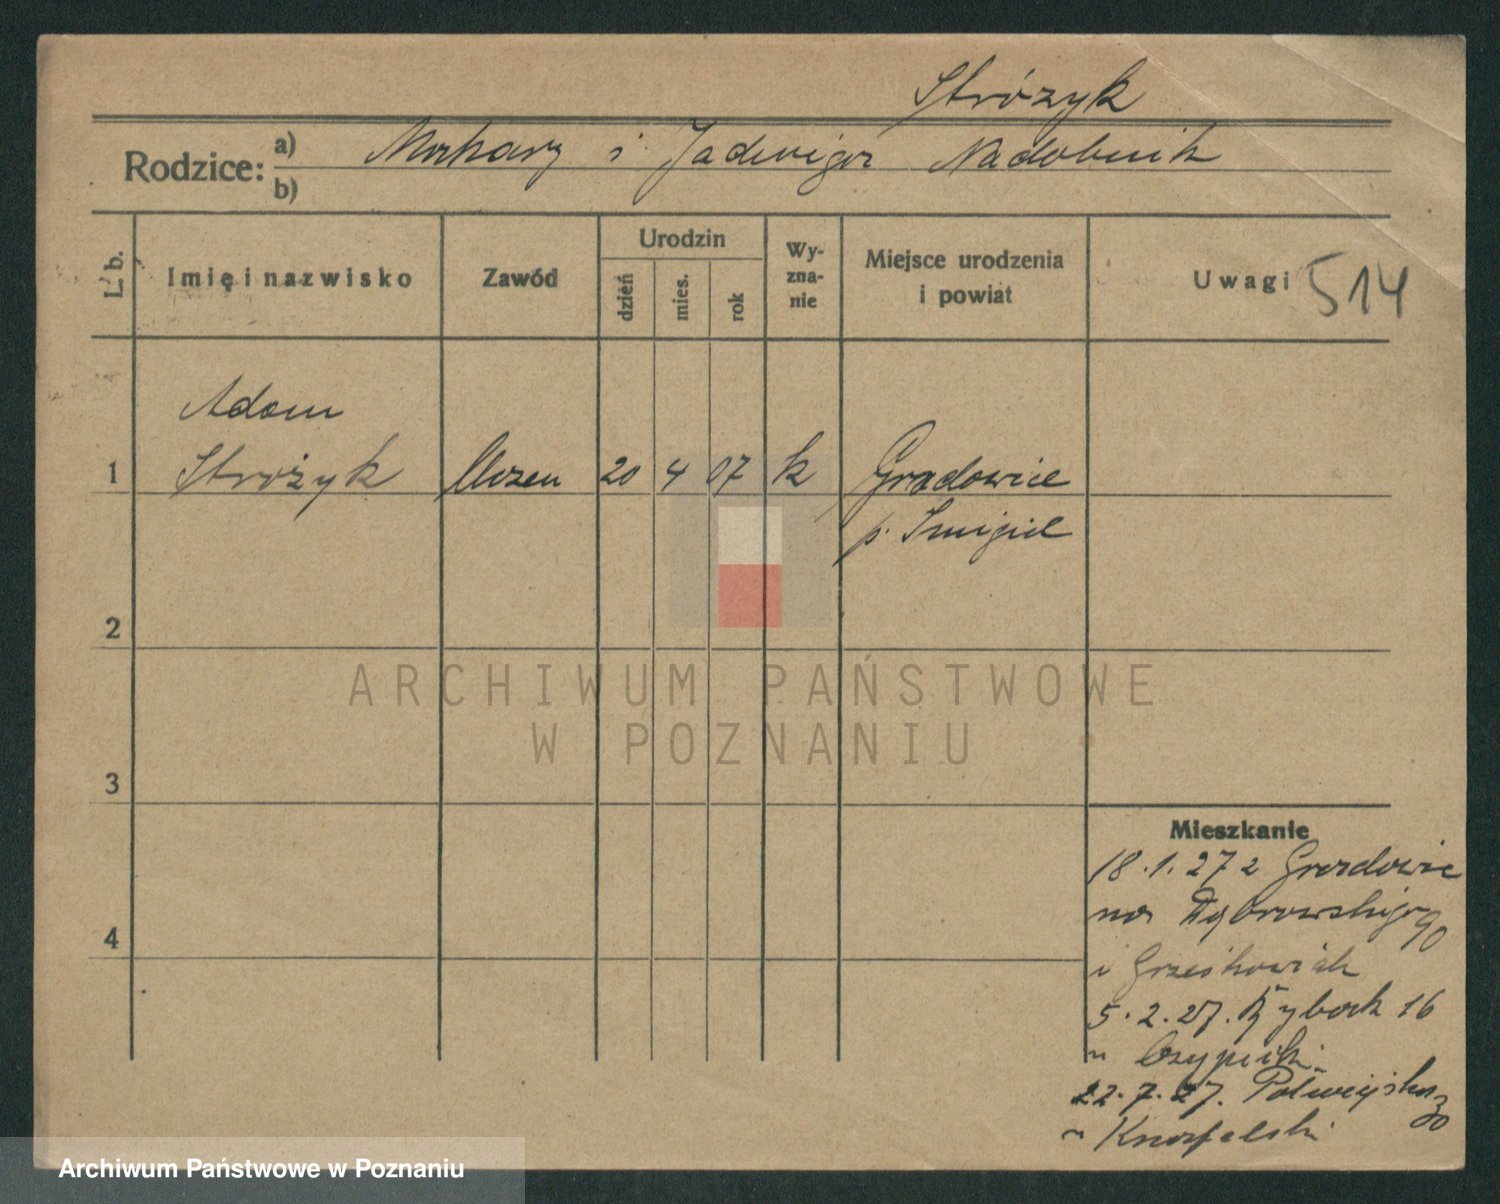 Stróżyk
Rodzice: a) Makary i Jadwiga Nadobnik
b)
L. b.
Imię i nazwisko
Zawód
Urodzin
dzień
mies.
rok
Wy-
zna-
nie
Miejsce urodzenia
i powiat
Uwagi 514
Adam
1 Stróżyk Uczeń 20 4 07 k Gradowice
p. Śmigiel
2
ARCHIWUM PAŃSTWOWE
W POZNANIU
3
Mieszkanie
18.1.27 z Gradowic
na Dąbrowskiego 90
4
i Grześkowiak
5.2.27. Rybak 16
22.7.27. Półwiejska 30
Archiwum Państwowe w Poznaniu